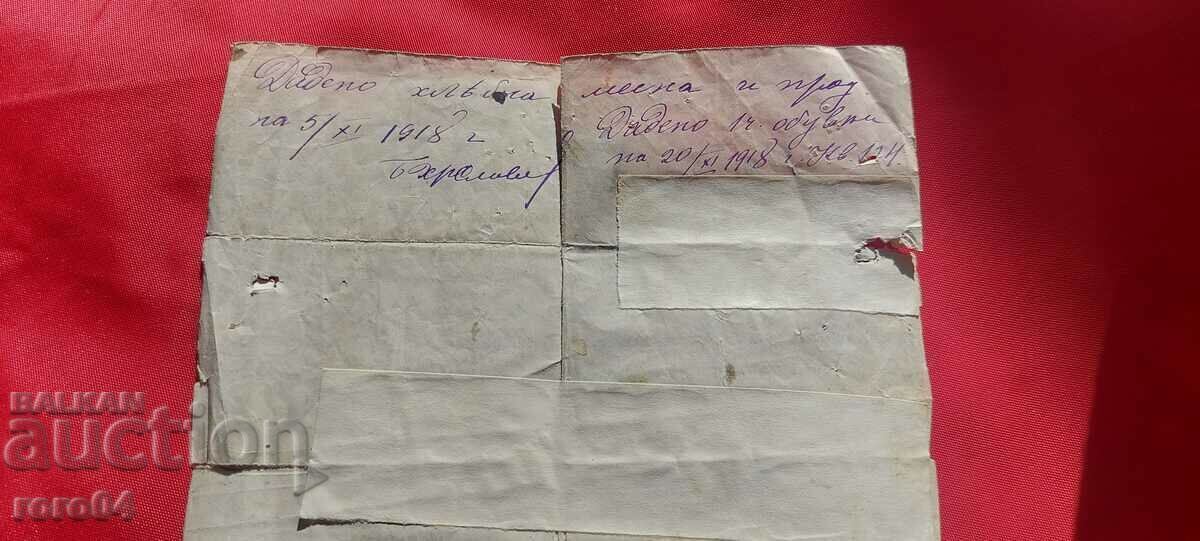 Дадено хлѣбна
на 5/XI 1918 г
месна и прод
Дадено 1 ч. обувки
на 20/XI 1918 г.
BALKAN
auction
roro04